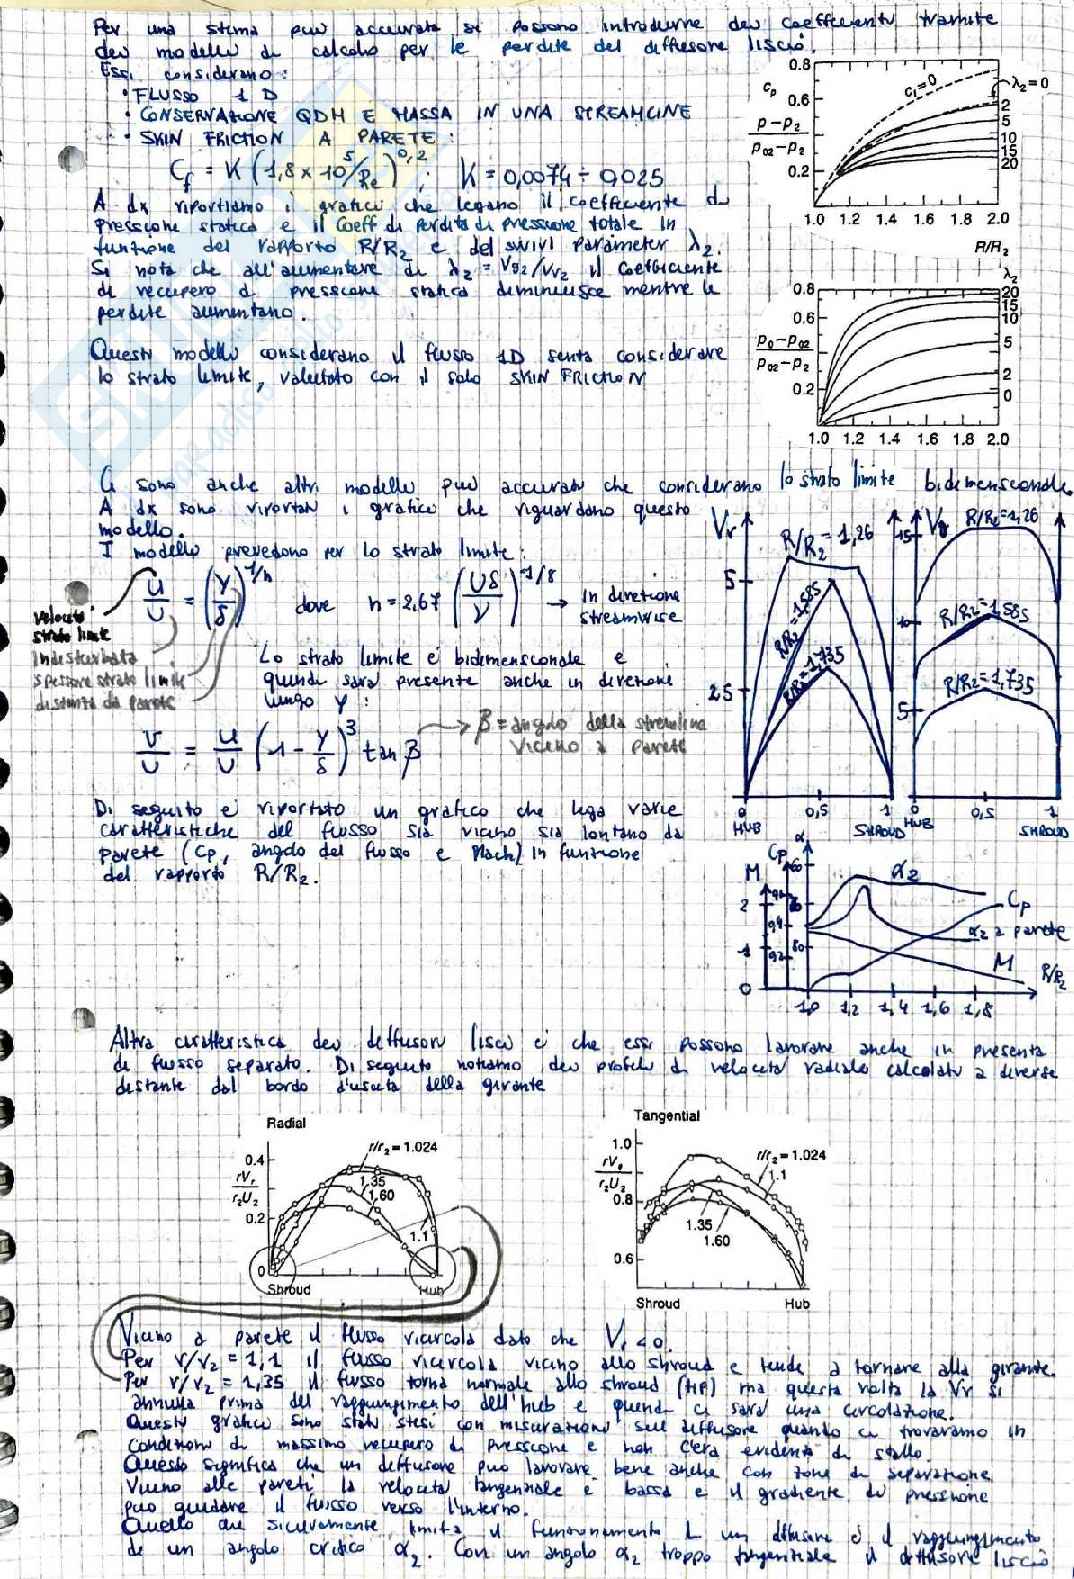 Per una stima più accurata si possono introdurre dei coefficienti tramite
dei modelli di calcolo per le perdite del diffusore liscio.
Essi considerano:
• FLUSSO 1D
• CONSERVAZIONE QDM E MASSA IN UNA STREAMLINE
• SKIN FRICTION A PARETE:
Cf = K (1,8 x 10^5/Re)^0,2 ; K = 0,0074 ÷ 0,025
A dx riportiamo i grafici che legano il coefficiente di
pressione statica e il Coeff di perdita di pressione totale in
funzione del rapporto R/R2 e del swirl parameter λ2.
Si nota che all'aumentare di λ2 = Vθ2/Vr2 il coefficiente
di recupero di pressione statica diminuisce mentre le
perdite aumentano.
Questi modelli considerano il flusso 1D senza considerare
lo strato limite, valutato con il solo SKIN FRICTION
0.8
cp
0.6
p-p2
p02-p2
0.2
cf=0
λ2=0
2
5
10
15
20
1.0 1.2 1.4 1.6 1.8 2.0
R/R2
λ2
0.8
0.6
p0-p02
p02-p2
0.2
20
15
10
5
2
0
1.0 1.2 1.4 1.6 1.8 2.0
Ci sono anche altri modelli più accurati che considerano lo strato limite bidimensionale
A dx sono riportati i grafici che riguardano questo
modello.
I modelli prevedono per lo strato limite:
u/U = (y/δ)^1/n dove n = 2,67 (Uδ/ν)^1/8 → in direzione
streamwise
velocità
strato limite
indisturbata
spessore strato limite
distanza da parete
Lo strato limite è bidimensionale e
quindi sarà presente anche in direzioni
lungo y:
v/U = u/U (1 - y/δ)^3 tan β
→ β = angolo della streamline
vicino a parete
Vr
R/R2 = 1,26
R/R2 = 1,585
R/R2 = 1,735
5
25
0 0,5 1
HUB SHROUD
Vθ
R/R2 = 1,26
R/R2 = 1,585
R/R2 = 1,735
15
10
5
0 0,5 1
HUB SHROUD
Di seguito è riportato un grafico che lega varie
caratteristiche del flusso sia vicino sia lontano da
parete (Cp, angolo del flusso e Mach) in funzione
del rapporto R/R2.
M
Cp
α
α2
Cp
α2 a parete
M
R/R2
2
1
0
1,0 1,2 1,4 1,6 1,8
Altra caratteristica dei diffusori lisci è che essi possono lavorare anche in presenza
di flusso separato. Di seguito notiamo dei profili di velocità radiale calcolati a diverse
distante dal bordo d'uscita della girante
Radial
0.4
rVr
r2U2
0.2
0
r/r2 = 1.024
1.35
1.60
1.1
Shroud Hub
Tangential
1.0
rVθ
r2U2
0.8
0.6
r/r2 = 1.024
1.1
1.35
1.60
Shroud Hub
Vicino a parete il flusso ricircola dato che Vr < 0.
Per r/r2 = 1,1 il flusso ricircola vicino allo shroud e tende a tornare alla girante.
Per r/r2 = 1,35 il flusso torna normale allo shroud (tip) ma questa volta la Vr si
annulla prima del raggiungimento dell'hub e quindi ci sarà una circolazione.
Questi grafici sono stati stesi con misurazioni sul diffusore quando ci trovavamo in
condizioni di massimo recupero di pressione e non c'era evidenza di stallo
Questo significa che un diffusore può lavorare bene anche con zone di separazione
Vicino alle pareti la velocità tangenziale è bassa e il gradiente di pressione
può guidare il flusso verso l'interno.
Quello che sicuramente limita il funzionamento di un diffusore è il raggiungimento
di un angolo critico α2. Con un angolo α2 troppo tangenziale il diffusore liscio